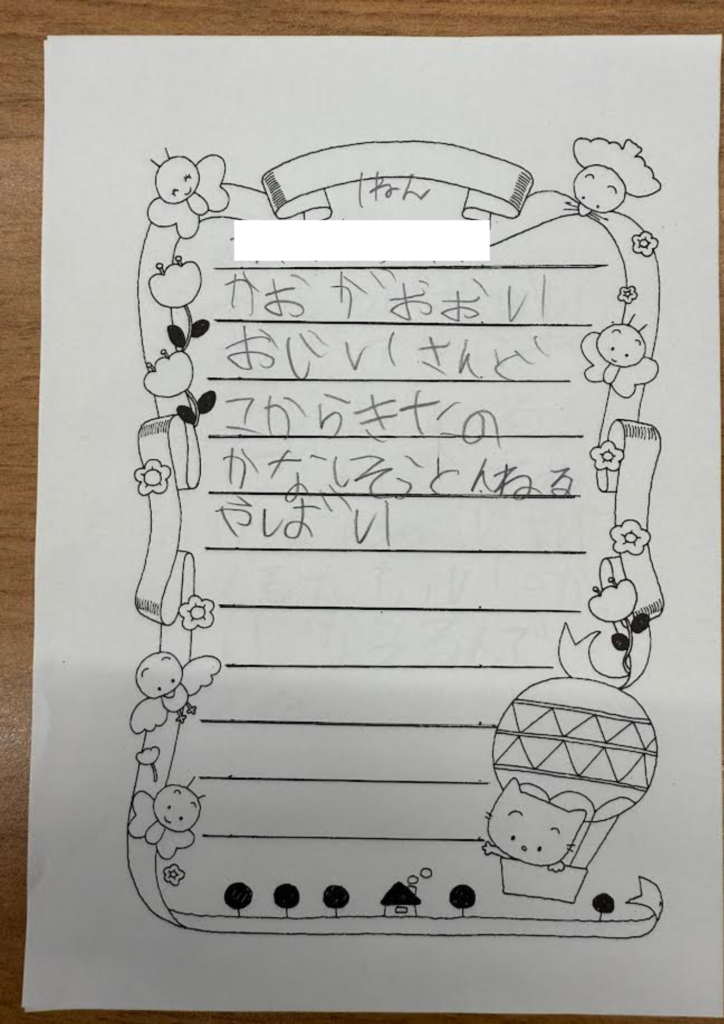 1ねん
かおがおおい
おじいさんど
こからきたの
かなしそうとんねる
やばい